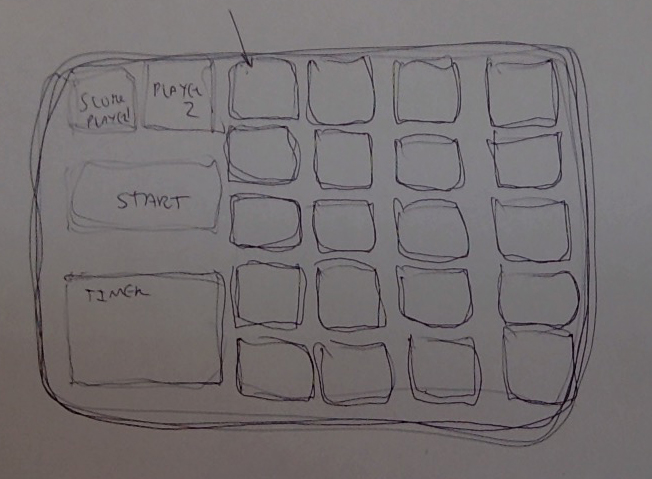 SCORE
PLAYER1
PLAYER
2
START
TIMER